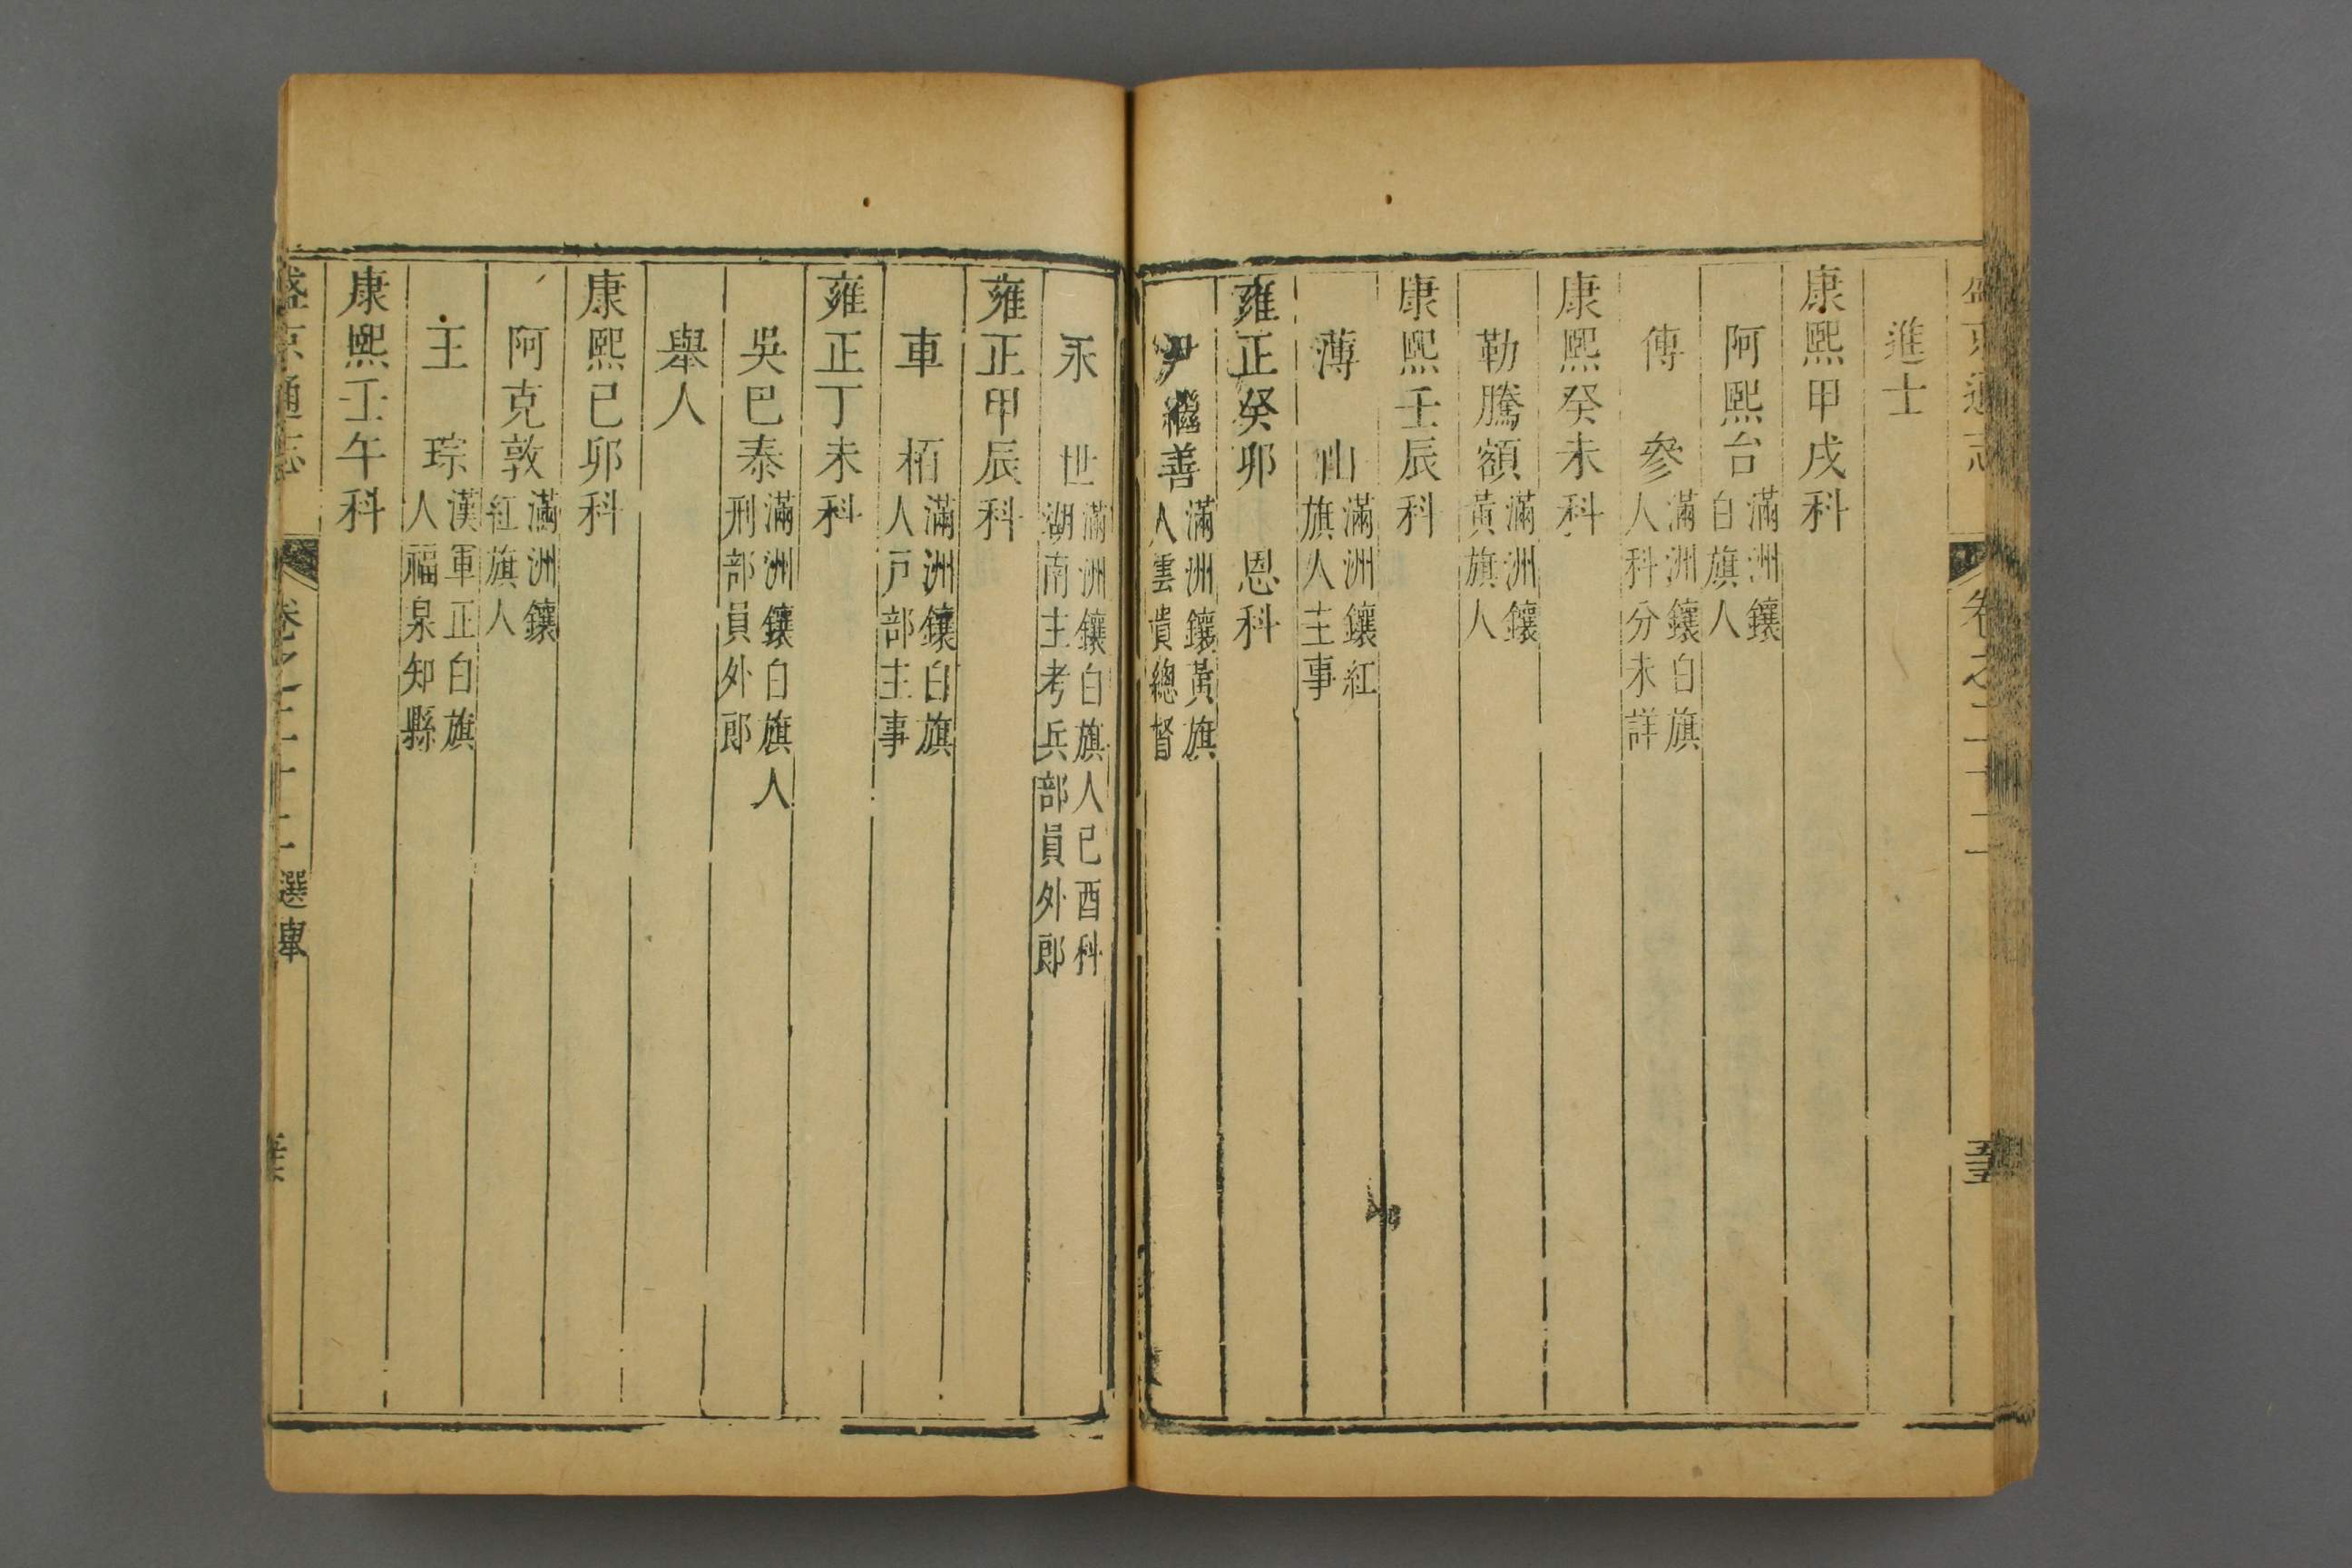 盛京通志 卷之三十三
進士
康熙甲戌科
阿熙台滿洲鑲白旗人
傅 參滿洲鑲白旗人科分未詳
康熙癸未科
勒騰額滿洲鑲黃旗人
康熙壬辰科
薄 山滿洲鑲紅旗人主事
雍正癸卯 恩科
尹繼善滿洲鑲黃旗人雲貴總督
永 世滿洲鑲白旗人己酉科湖南主考兵部員外郎
雍正甲辰科
車 栢滿洲鑲白旗人戸部主事
雍正丁未科
吳巴泰滿洲鑲白旗人刑部員外郎
舉人
康熙己卯科
阿克敦滿洲鑲紅旗人
王 琮漢軍正白旗人福泉知縣
康熙壬午科
盛京通志 卷之三十三 選舉